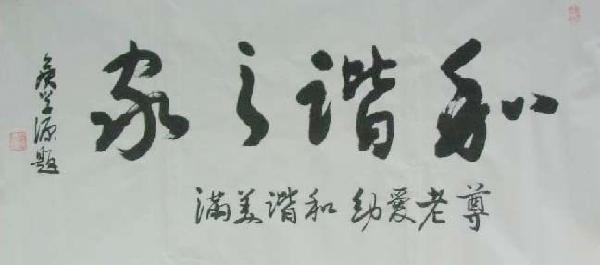 和谐之家
尊老爱幼和谐美满
源题